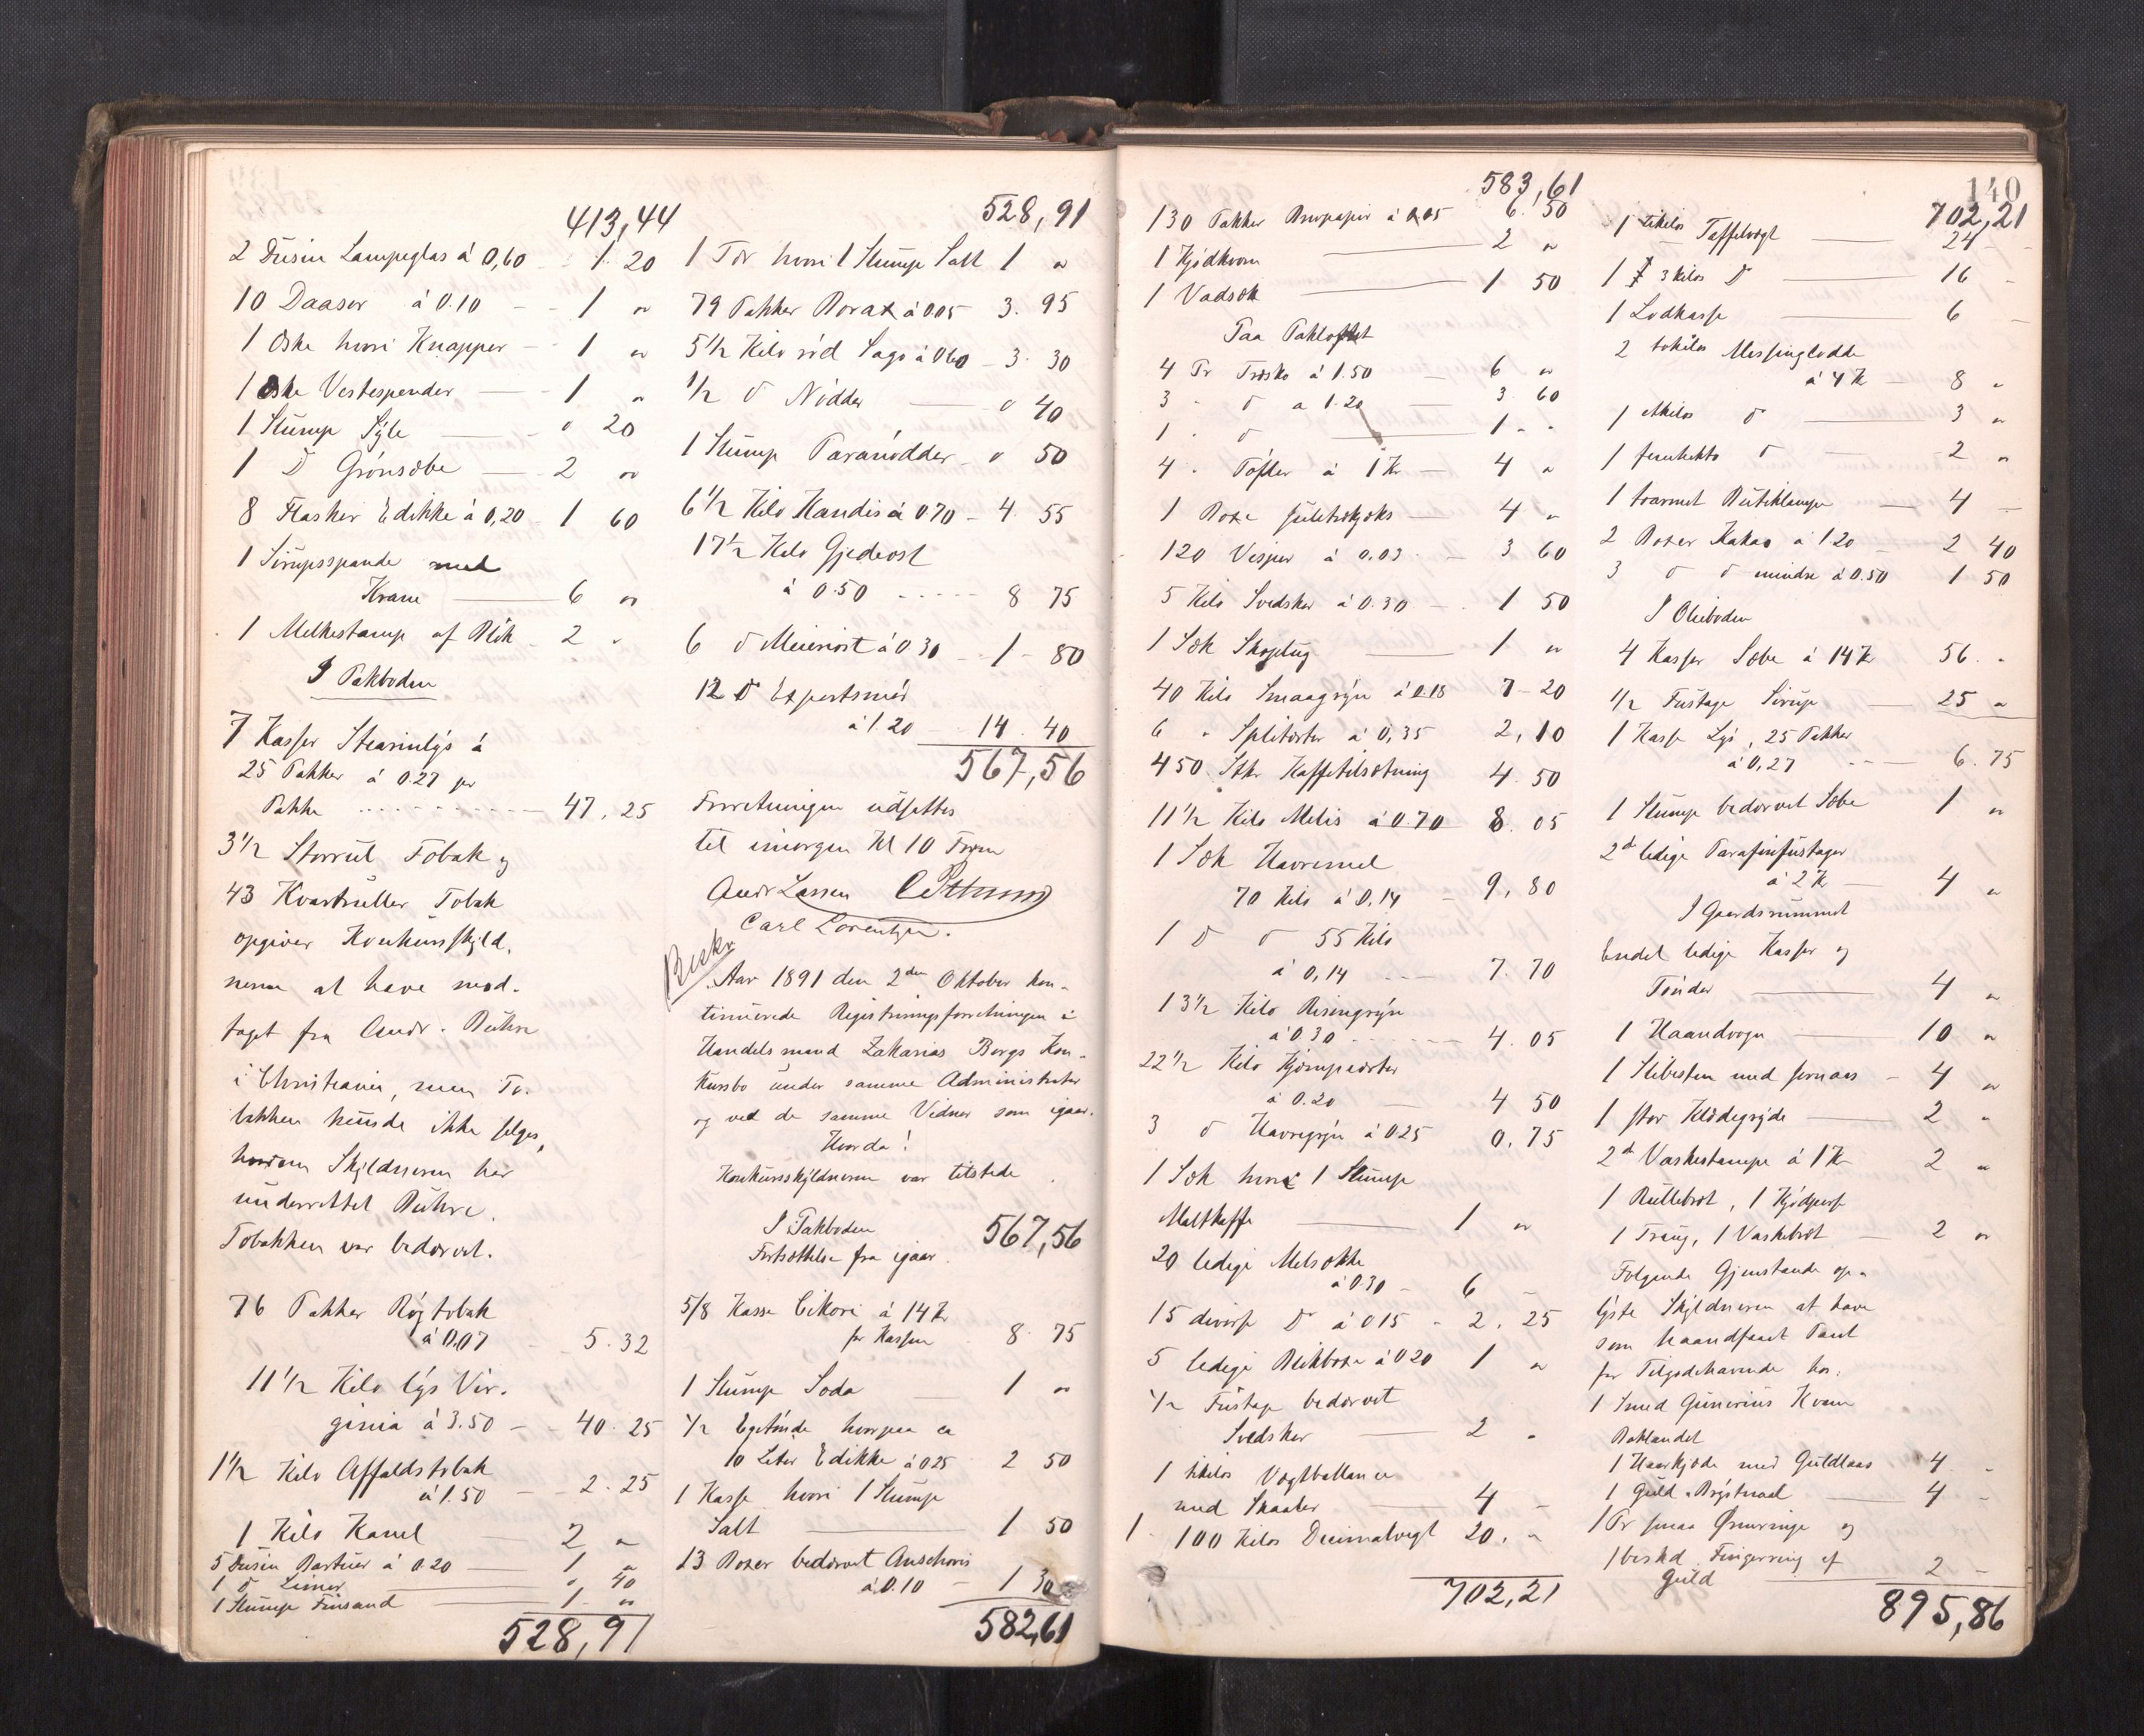 413,44
2 Dusin Lampeglas á 0,60 1. 20
10 Daaser á 0.10 - 1 "
1 Æske hvori Knapper - 1 "
1 Æske Vestespender - 1 "
1 Slump Syle - " 20
1 D Grønsæbe - 2 "
8 Flasker Edikke á 0,20 1 60
1 Sirupsspande med
Krane - 6 "
1 Melkestamp af Blik - 2 "
I Pakboden
7 Kasser Stearinlys á
25 Pakker á 0.27 pr
Pakke - 47,25
3 1/2 Storrul Tobak og
43 Kvartruller Tobak
opgiver Konkursskyld,
neren at have mod-
taget fra Andr. Bühre
i Christiania, men To-
bakken kunde ikke selges,
hvorom Skyldneren har
underrettet Bühre.
Tobakken var bedærvet.
76 Pakker Røgtobak
á 0,07 - 5.32
11 1/2 Kilo lys Vir-
ginia á 3.50 - 40.25
1 1/2 Kilo Affaldstobak
á 1.50 - 2.25
1 Kilo Kanel 2 "
5 Dusin á 0.20 - 1 "
1 D - " 40
1 Slump Finsand - 1 "
528,91
528,91
1 hvori 1 Slump Salt 1 "
79 Pakker Borax á 0.05 - 3.95
5 1/2 Kilo rød Sago á 0.60 - 3.30
1/2 D Nødder - " 40
1 Slump Paranødder - " 50
6 1/2 Kilo Kandis á 0.70 - 4.55
17 1/2 Kilo Gjedeost
á 0.50 - 8 75
6 D Meieriost á 0.30 - 1 - 80
12 D Exportsmør
á 1.20 - 14.40
567,56
Forretningen udsattes
til imorgen Kl 10 Form
Andr Larsen
Carl Lorentzen.
Beskr
Aar 1891 den 2den Oktober kon-
tinuerede Registreringsforretningen i
Handelsmand Zakarias Bergs Kon-
kursbo under samme Administrator
og ved de samme Vidner som igaar.
Hvorda!
Konkursskyldneren var tilstede.
I Pakboden 567,56
Fortsættelse fra igaar.
5/8 Kasse Cikori á 14 Kr
pr Kassen 8.75
1 Slump Soda - 1 "
1/2 Egetønde hvorpaa ca
10 Liter Edikke á 0.25 2 50
1 Kasse hvori 1 Slump
Salt - 1 50
13 Boxer bedærvet Anschovis
á 0.10 - 1 30
582,61
583,61
130 Pakker Brevpapir á 0.05 6.50
1 Kjødkværn - 2 "
1 Vadsæk - 1 50
Paa Pakloftet
4 Pr Træsko á 1.50 - 6 "
3 " D a 1.20 - 3.60
1 " D - 1 " "
4 " Tøfler á 1 Kr - 4 "
1 Boxe - 4 "
120 Vesper á 0.03 - 3 60
5 Kilo Svedsker á 0.30 - 1 50
1 Sæk Skoptug - 1 "
40 Kilo Smaagryn á 0.18 7-20
6 " Spliterter á 0,35 2,10
450 Stkr Kaffetilsætning 4.50
11 1/2 Kilo Melis á 0.70 8.05
1 Sæk Havremel
70 Kilo á 0.14 - 9,80
1 D D 55 Kilo
á 0,14 - 7.70
13 1/2 Kilo Risengryn
á 0.30 - 4.05
22 1/2 Kilo Kjæmpeærter
á 0.20 - 4 50
3 D Havregryn á 0.25 0.75
1 Sæk hvori 1 Slump
Maltkaffe - 1 "
20 ledige Melsække
á 0.30 - 6 -
15 diverse D á 0.15 - 2.25
5 ledige Blikboxe á 0.20 1 "
1/2 Fustage bedærvet
Svedsker - 2 "
1 Vægtballance
med Skaaler - 4 -
1 100 Kilos Decimalvægt 20. "
702,21
140
702,21
1 Taffelvægt - 24 -
1 3 kilos D - 16 -
1 Lodkasse - 6 -
2 tokilos Messinglodde
á 4 Kr - 8 "
1 D - 3 "
1 D - 2 "
1 toarmet Butiklampe - 4 -
2 Boxer Kakao á 1.20 - 2 40
3 D D mindre á 0.50 1 50
I Olieboden
4 Kasser Sæbe á 14 Kr 56. "
1/2 Fustage Sirup - 25 "
1 Kasse Lys, 25 Pakker
á 0,27 - 6.75
1 Slump bedærvet Sæbe 1 "
2 ledige Parafinfustager
á 2 Kr - 4 "
I Gaardsrummet
Endel ledige Kasser og
Tønder - 4 "
1 Haandvogn - 10 "
1 Slibesten med - 4 "
1 stor Klædegryde - 2 "
2 Vaskestampe á 1 Kr 2 "
1 Rullebræt, 1
1 Traug, 1 Vaskebræt - 2 "
Følgende Gjenstande op-
lyste Skyldneren at have
som haandfaaet Pant
for Tilgodehavende hos:
1 Smed Gunerius Kvam
Baklandet
1 Haarkjæde med Guldlaas 4 -
1 Guld-Brystnaal - 4 -
1 Pr smaa Ørenringe og
1 beskd. Fingerring af
Guld - 2 -
895,86